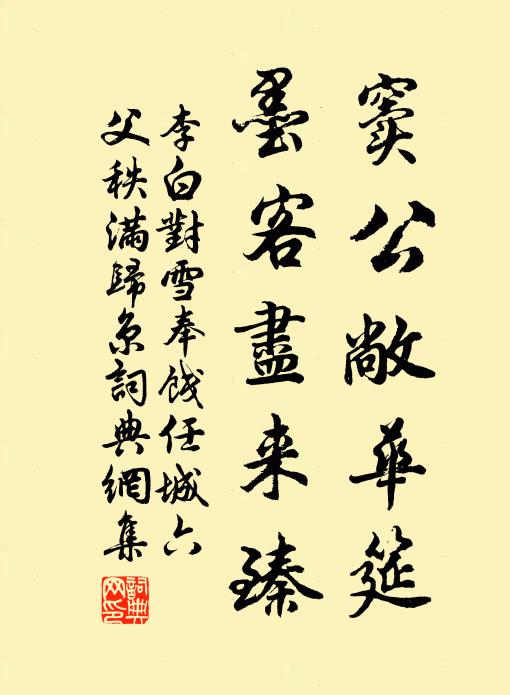 窦公敞華筵
墨客盡来臻
李白對雪奉餞任城六
父秩滿歸京詞典網集
詞典网印